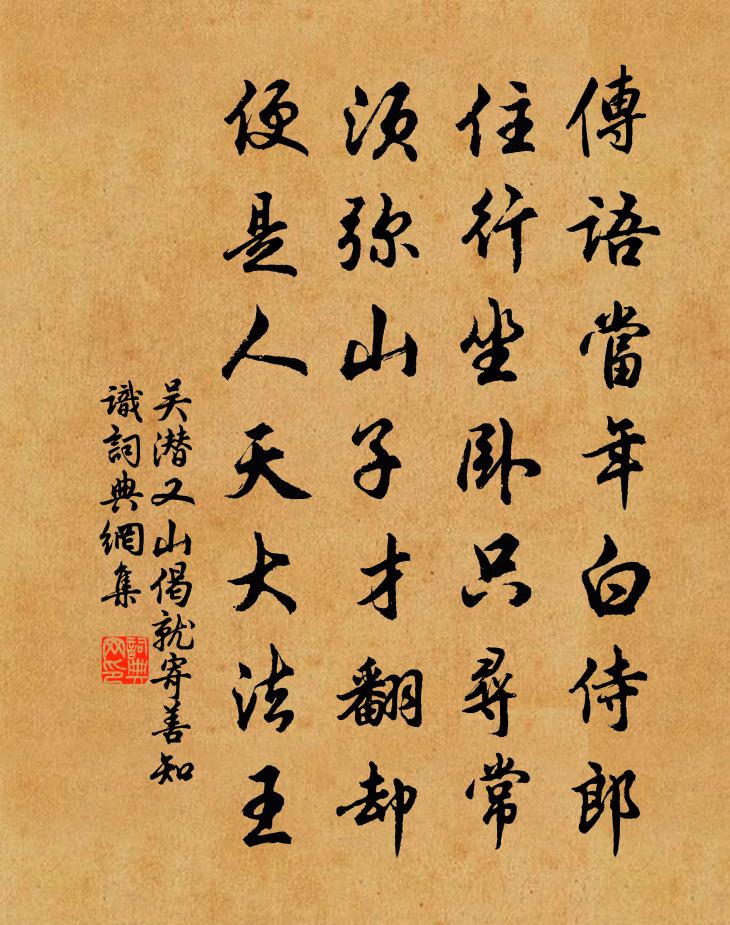 傳語當年白侍郎
住行坐卧只尋常
須弥山子才翻却
便是人天大法王
吴潜又山偈就寄善知
識詞典網集
詞典网印